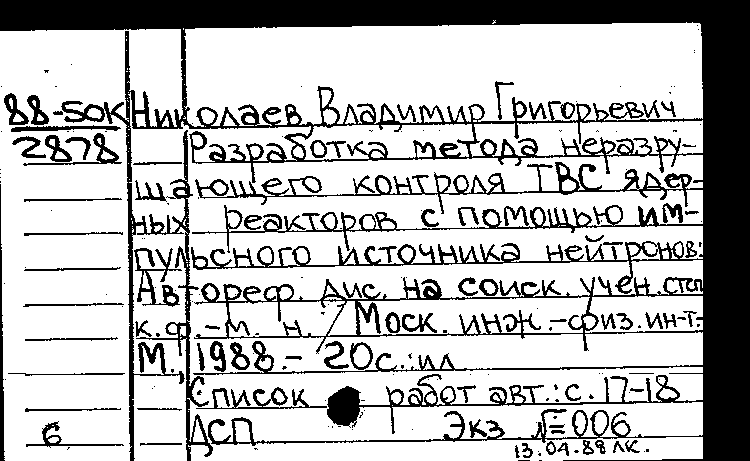 88-50К Николаев, Владимир Григорьевич
2878 Разработка метода неразру-
шающего контроля ТВС ядер-
ных реакторов с помощью им-
пульсного источника нейтронов:
Автореф. дис. на соиск. учен. степ
к.ф.-м. н. / Моск. инж.-физ. ин-т.-
М., 1988.- 20с.:ил
Список работ авт.: с. 17-18
6 ДСП Экз №=006
13.04.88 ЛК.